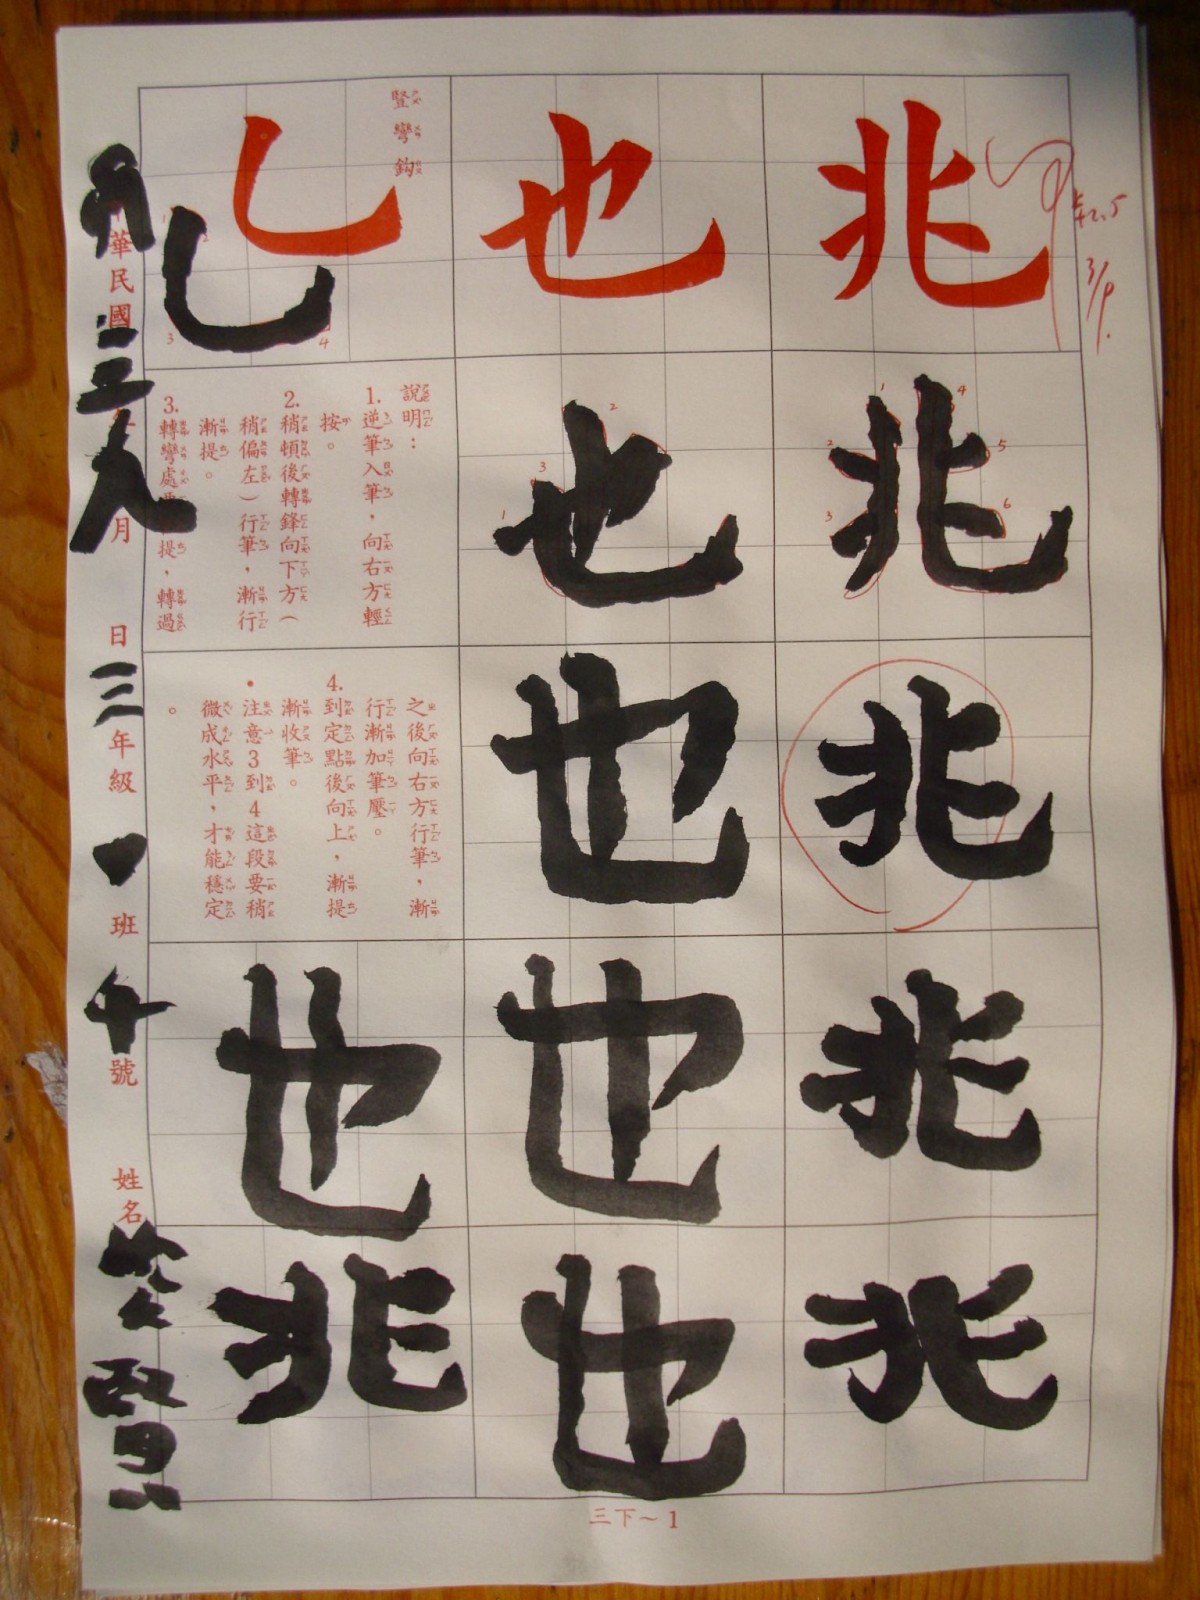 兆
兆
兆
兆
兆
也
也
也
也
也
豎彎鈎
乚
乚
說明：
1.逆筆入筆，向右方輕
按。
2.稍頓後轉鋒向下方（
稍偏左）行筆，漸行
漸提。
3.轉彎處要提，轉過
之後向右方行筆，漸
行漸加筆壓。
4.到定點後向上，漸提
漸收筆。
•注意3到4這段要稍
微成水平，才能穩定
。
也
兆
華民國
月
日
三年級
班
號
姓名
三下～1
3/9.